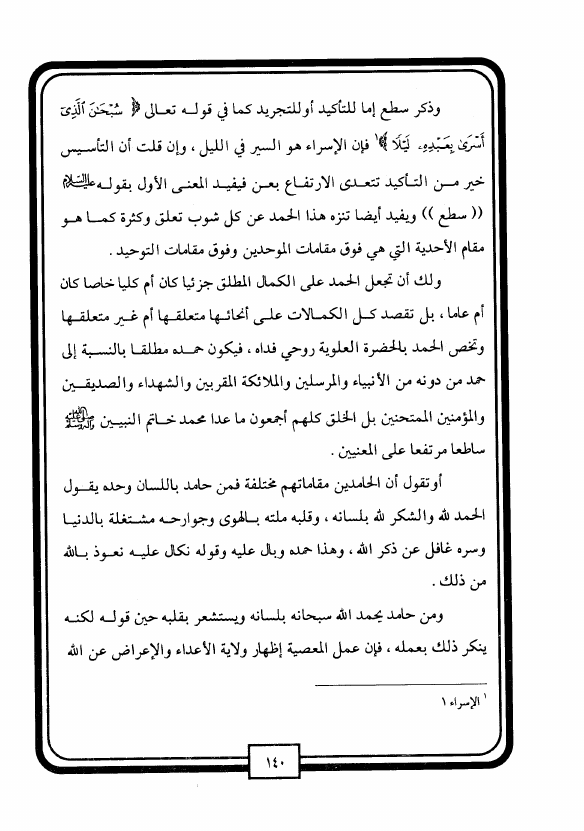 وذكر سطع إما للتأكيد أو للتجريد كما في قوله تعالى ﴿ سُبْحَٰنَ ٱلَّذِىٓ
أَسْرَىٰ بِعَبْدِهِۦ لَيْلًا ﴾١ فإن الإسراء هو السير في الليل ، وإن قلت أن التأسيس
خير من التأكيد تتعدى الارتفاع بعن فيفيد المعنى الأول بقوله عليه السلام
(( سطع )) ويفيد أيضا تنزه هذا الحمد عن كل شوب تعلق وكثرة كما هو
مقام الأحدية التي هي فوق مقامات الموحدين وفوق مقامات التوحيد .
ولك أن تجعل الحمد على الكمال المطلق جزئيا كان أم كليا خاصا كان
أم عاما ، بل تقصد كل الكمالات على أنحائها متعلقها أم غير متعلقها
وتخص الحمد بالحضرة العلوية روحي فداه ، فيكون حمده مطلقا بالنسبة إلى
حمد من دونه من الأنبياء والمرسلين والملائكة المقربين والشهداء والصديقين
والمؤمنين الممتحنين بل الخلق كلهم أجمعون ما عدا محمد خاتم النبيين
ساطعا مرتفعا على المعنيين .
أو تقول أن الحامدين مقاماتهم مختلفة فمن حامد باللسان وحده يقول
الحمد لله والشكر لله بلسانه ، وقلبه ملته بالهوى وجوارحه مشتغلة بالدنيا
وسره غافل عن ذكر الله ، وهذا حمده وبال عليه وقوله نكال عليه نعوذ بالله
من ذلك .
ومن حامد يحمد الله سبحانه بلسانه ويستشعر بقلبه حين قوله لكنه
ينكر ذلك بعمله ، فإن عمل المعصية إظهار ولاية الأعداء والإعراض عن الله
١ الإسراء ١
١٤٠